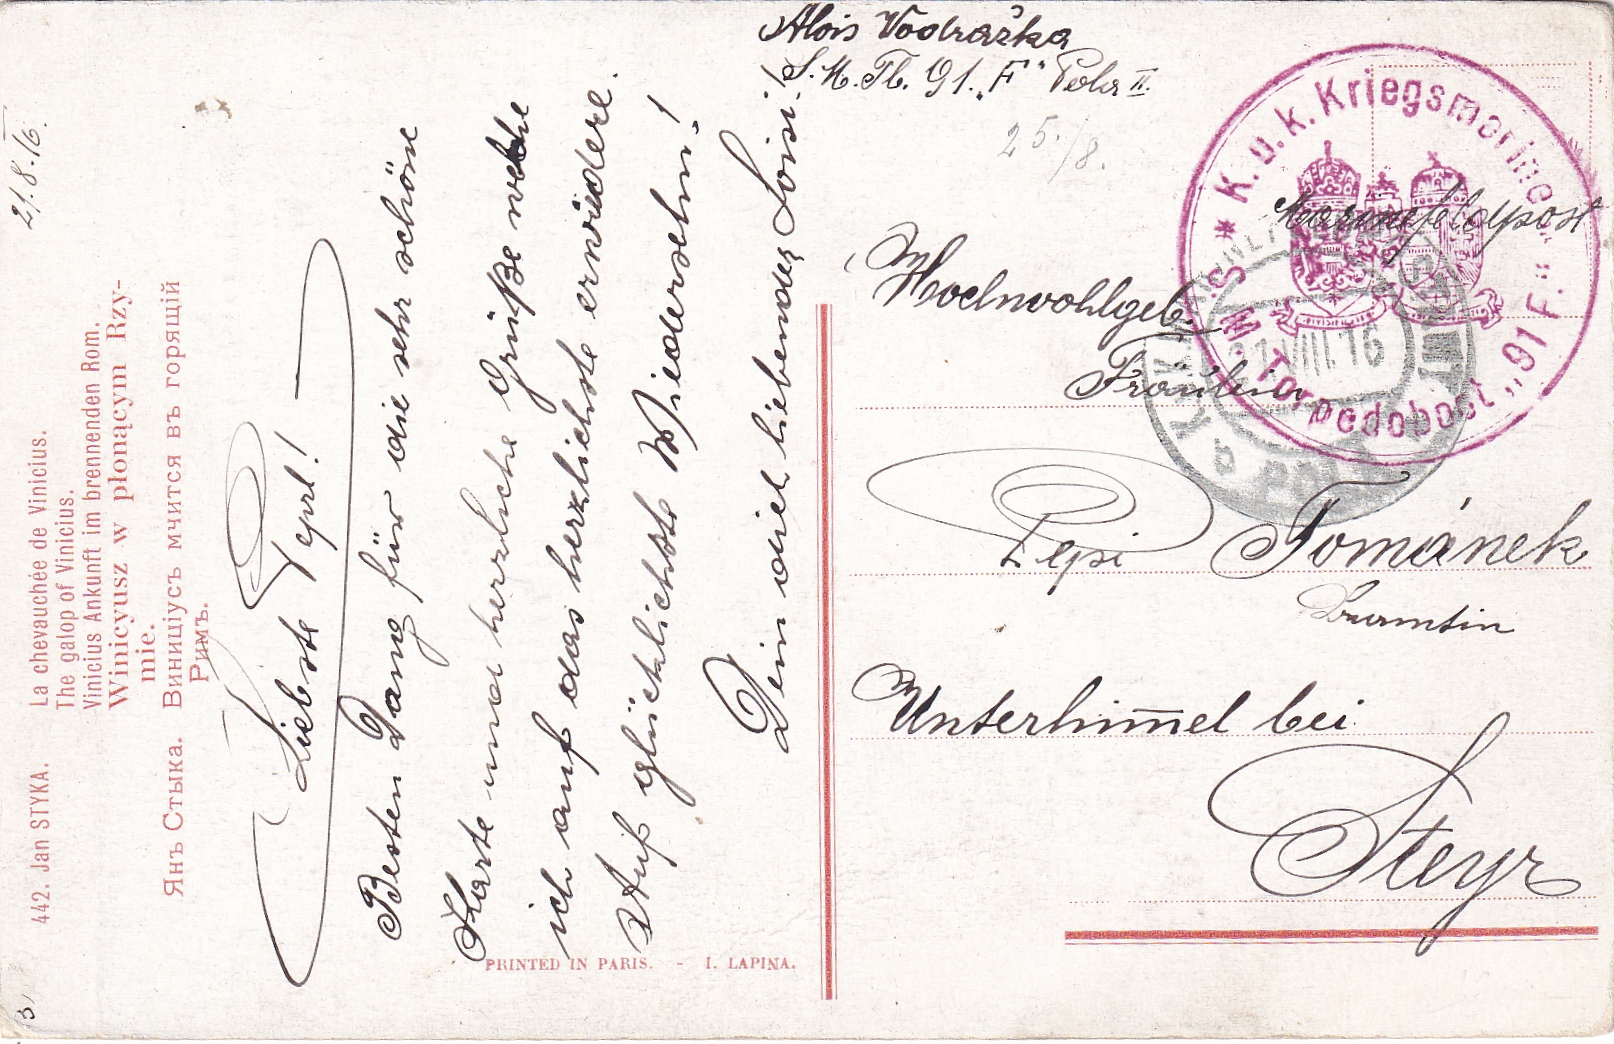 21.8.16.
442. Jan STYKA. La chevauchée de Vinicius.
The galop of Vinicius.
Vinicius Ankunft im brennenden Rom.
Winicyusz w płonącym Rzy-
mie.
Янъ Стыка. Виниціусъ мчится въ горящій
Римъ.
Liebste Pepi!
Besten Dang für die sehr schöne
Karte und herzliche Grüße welche
ich auf das herzlichste erwiedere.
Auf glücklichste Wiedersehn!
Dein dich liebender Loisi!
PRINTED IN PARIS. - I. LAPINA.
Alois Vodražka
S. M. Tb. 91. „F“ Pola II.
25./8.
* K. u. k. Kriegsmarine *
S. M. Torpedoboot „91 F.“
Marinefeldpost
21 VIII 16
POLA
Hochwohlgeb.
Fräulein
Pepi Tománek
Unterhimmel bei
Steyr